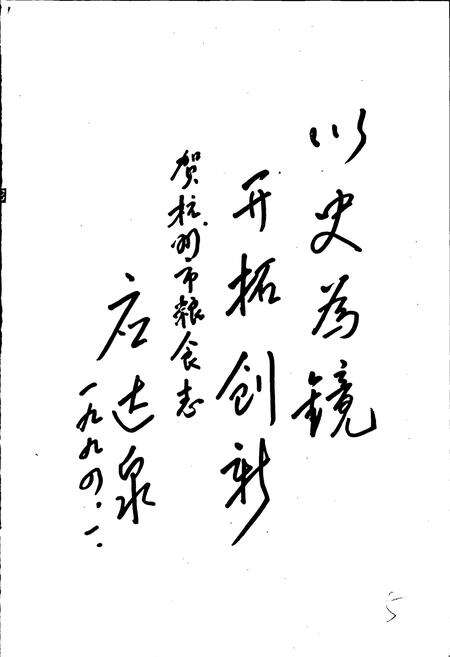 以史為鏡
开拓创新
贺杭州市粮食志
应达泉
一九九四.一.
5